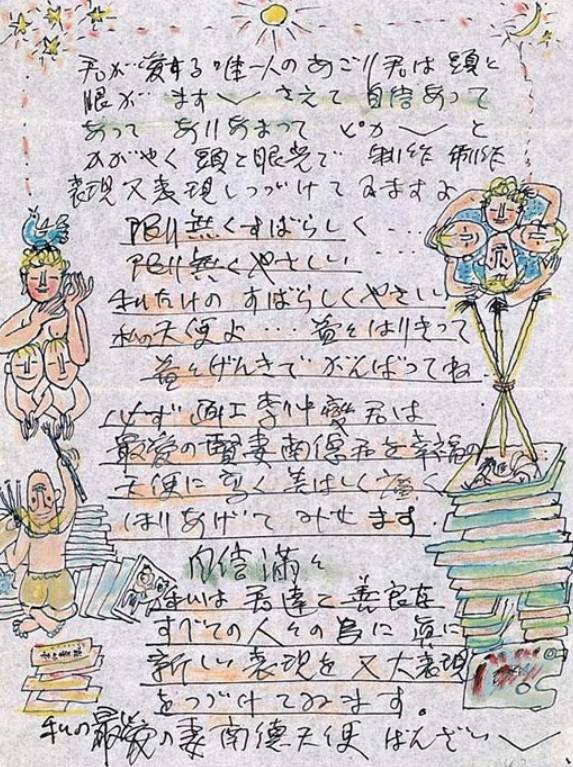 君が愛する唯一人のあごり君は 頭と
眼が ますます さえて 自信あって
あって ありあまって ピカピカ と
かがやく 頭と眼光で 制作 制作
表現又表現しつづけてゐますよ
限り無くすばらしく …
限り無くやさしい …
私だけの すばらしくやさしい
私の天使よ … 益々はりきって
益々げんきで がんばってね
必ず 画工 李仲燮君は
最愛の賢妻南徳君を幸福の
天使に 高く 美しく 広く
ほりあげて みせます.
自信満々
私は 君達と 善良な
すべての人々の為に 真に
新しい 表現を 又 大表現
をつづけてゐます。
私の最愛の妻南徳天使 ばんざい